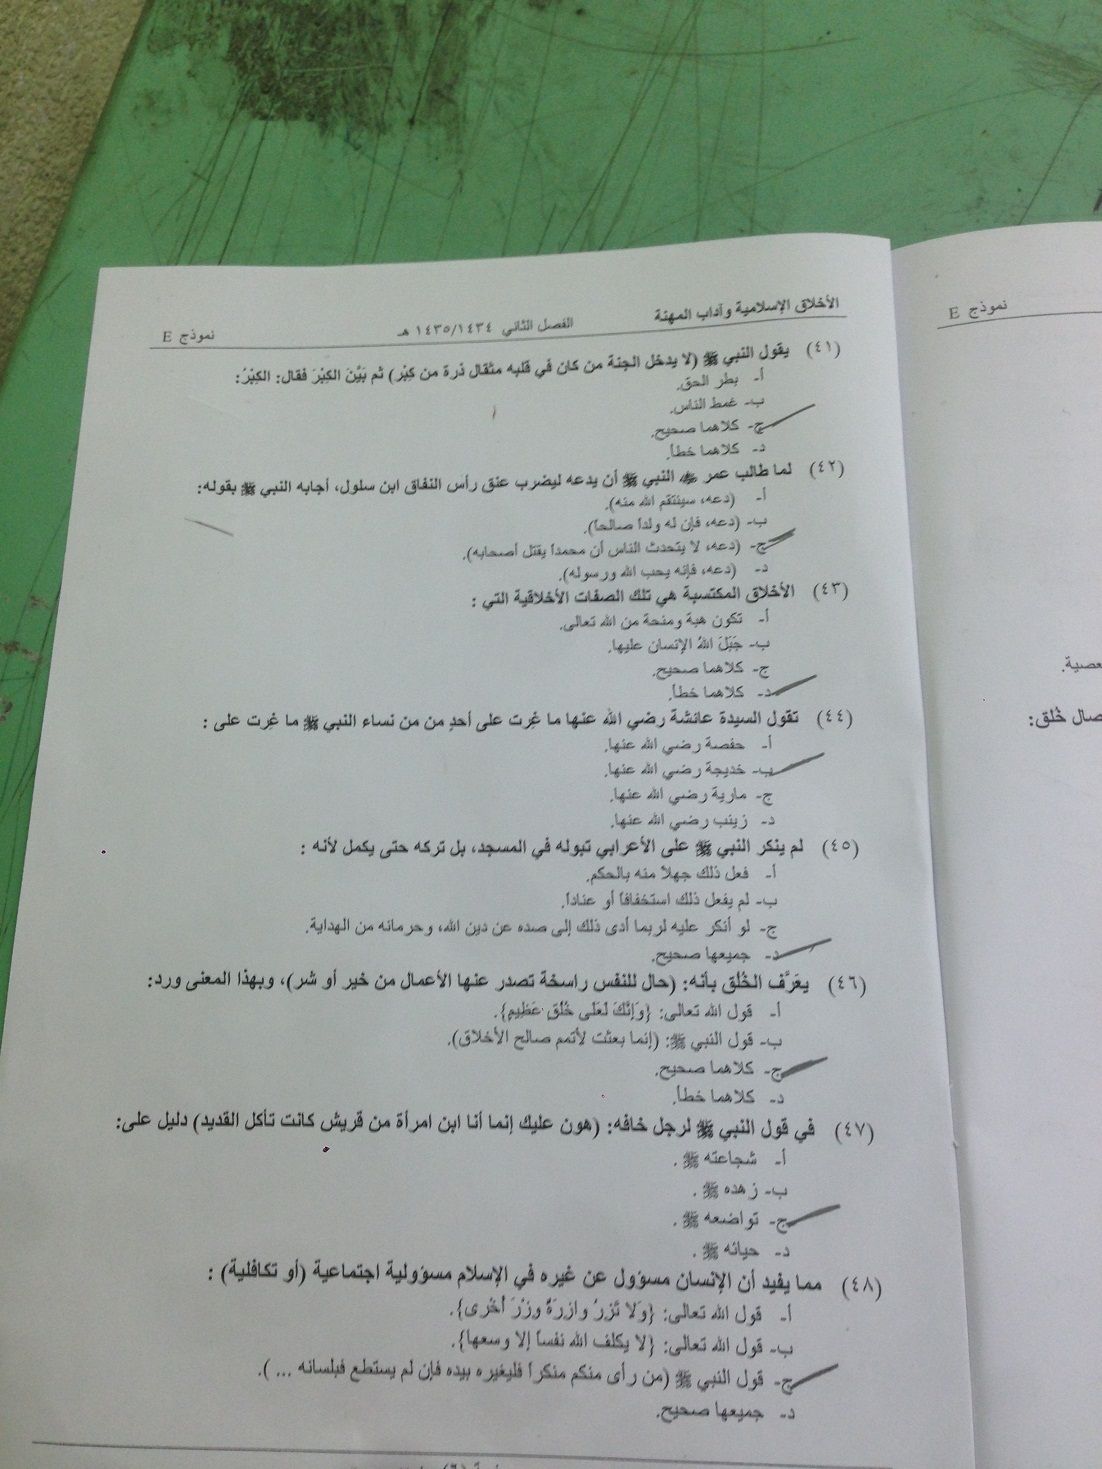 الأخلاق الإسلامية وآداب المهنة
الفصل الثاني ١٤٣٥/١٤٣٤ هـ
نموذج E
(٤١) يقول النبي ﷺ (لا يدخل الجنة من كان في قلبه مثقال ذرة من كِبْر) ثم بَيَّنَ الكِبْرَ فقال: الكِبْرُ:
أ- بطر الحق.
ب- غمط الناس.
ج- كلاهما صحيح.
د- كلاهما خطأ.
(٤٢) لما طالب عمر ﷺ النبي ﷺ أن يدعه ليضرب عنق رأس النفاق ابن سلول، أجابه النبي ﷺ بقوله:
أ- (دعه، سينتقم الله منه).
ب- (دعه، فإن له ولداً صالحاً).
ج- (دعه، لا يتحدث الناس أن محمداً يقتل أصحابه).
د- (دعه، فإنه يحب الله ورسوله).
(٤٣) الأخلاق المكتسبة هي تلك الصفات الأخلاقية التي :
أ- تكون هبة ومنحة من الله تعالى.
ب- جَبَلَ اللهُ الإنسان عليها.
ج- كلاهما صحيح.
د- كلاهما خطأ.
(٤٤) تقول السيدة عائشة رضي الله عنها ما غِرت على أحدٍ من من نساء النبي ﷺ ما غِرت على :
أ- حفصة رضي الله عنها.
ب- خديجة رضي الله عنها.
ج- مارية رضي الله عنها.
د- زينب رضي الله عنها.
(٤٥) لم ينكر النبي ﷺ على الأعرابي تبوله في المسجد، بل تركه حتى يكمل لأنه :
أ- فعل ذلك جهلاً منه بالحكم.
ب- لم يفعل ذلك استخفافاً أو عناداً.
ج- لو أنكر عليه لربما أدى ذلك إلى صده عن دين الله، وحرمانه من الهداية.
د- جميعها صحيح.
(٤٦) يعَرَّف الخُلُق بأنه: (حال للنفس راسخة تصدر عنها الأعمال من خير أو شر)، وبهذا المعنى ورد:
أ- قول الله تعالى: {وَإِنَّكَ لَعَلى خُلُقٍ عَظِيمٍ}.
ب- قول النبي ﷺ: (إنما بعثت لأتمم صالح الأخلاق).
ج- كلاهما صحيح.
د- كلاهما خطأ.
(٤٧) في قول النبي ﷺ لرجل خافه: (هون عليك إنما أنا ابن امرأة من قريش كانت تأكل القديد) دليل على:
أ- شجاعته ﷺ .
ب- زهده ﷺ .
ج- تواضعه ﷺ .
د- حيائه ﷺ .
(٤٨) مما يفيد أن الإنسان مسؤول عن غيره في الإسلام مسؤولية اجتماعية (أو تكافلية) :
أ- قول الله تعالى: {وَلا تَزِرُ وازِرَةٌ وِزْرَ أُخْرى}.
ب- قول الله تعالى: {لا يكلف الله نفساً إلا وسعها}.
ج- قول النبي ﷺ (من رأى منكم منكراً فليغيره بيده فإن لم يستطع فبلسانه ... ).
د- جميعها صحيح.
نموذج E
صال خُلق: